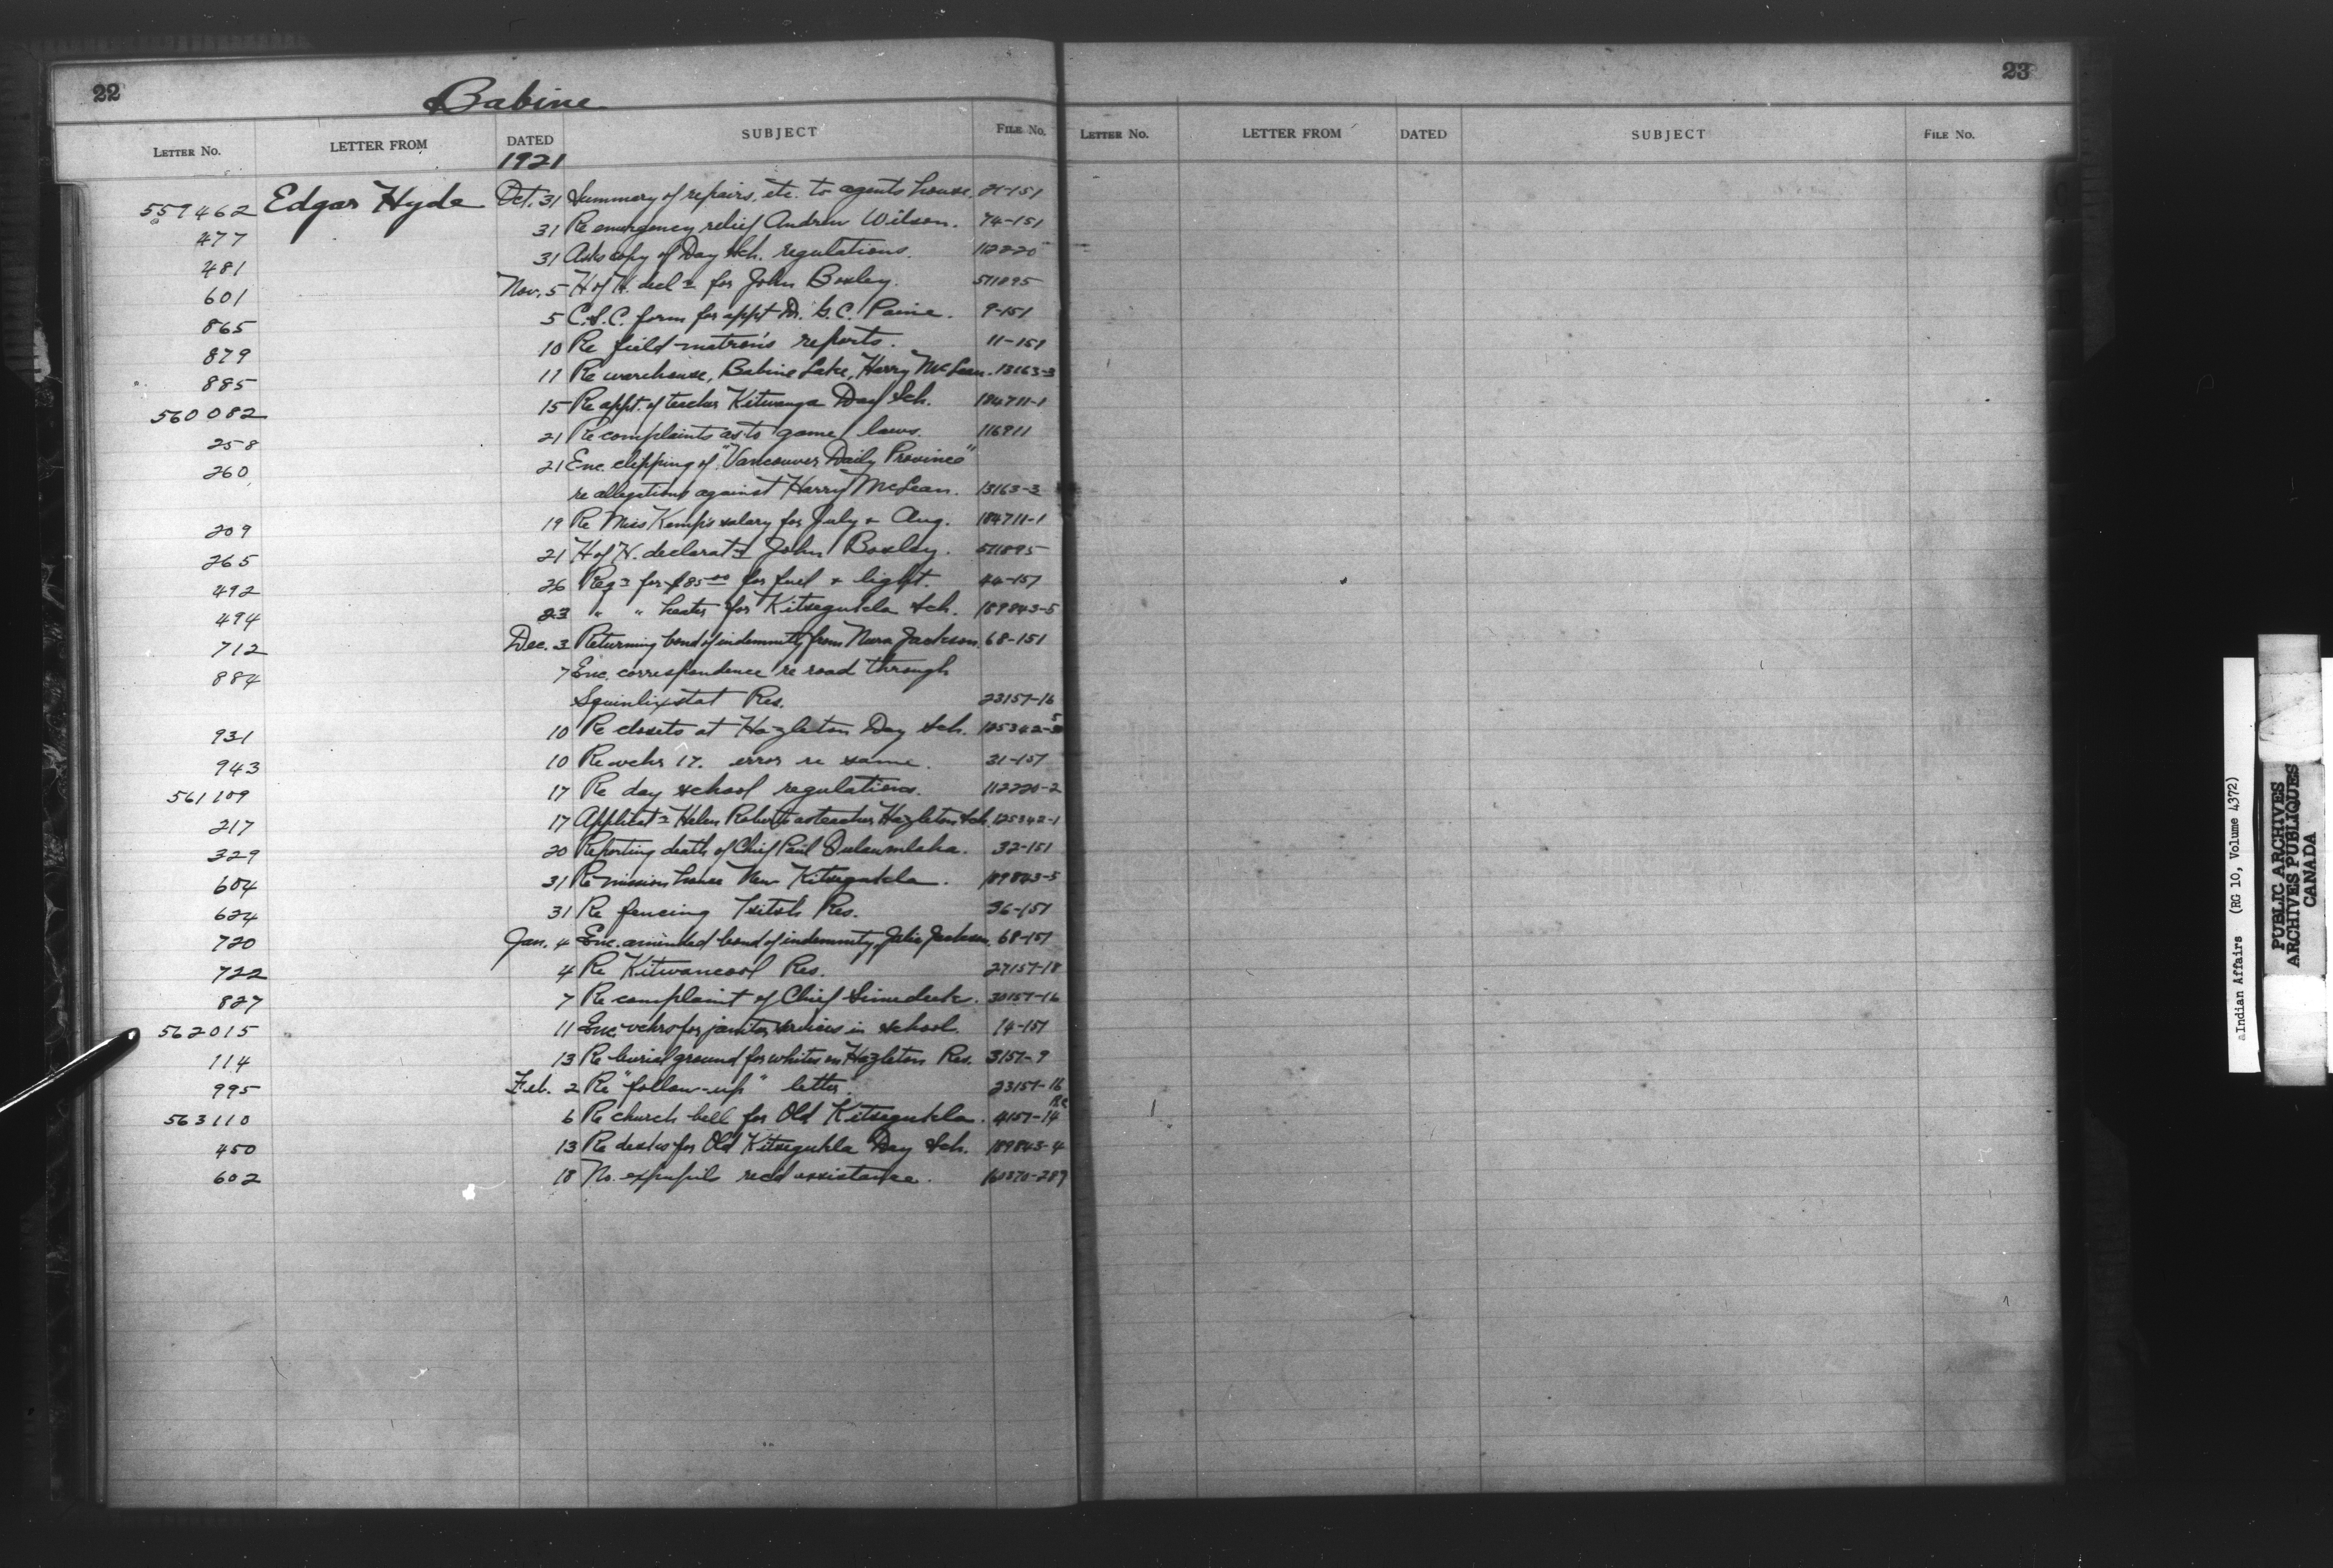 22
Babine
LETTER NO. LETTER FROM DATED SUBJECT FILE NO.
1921
559462 Edgar Hyde Oct. 31 Summary of repairs, etc. to agents house. 21-151
477 31 Re emergency relief Andrew Wilson. 74-151
481 31 Asks copy of Day Sch. regulations. 112220
601 Nov. 5 H of H. decl n for John Boxley. 511895
865 5 C.S.C. form for appt Dr. G.C. Paine. 9-151
879 10 Re field-matron's reports. 11-151
885 11 Re warehouse, Babine Lake, Harry McLean. 13163-3
560082 15 Re appt. of teacher Kitwanga Day Sch. 184711-1
258 21 Re complaints as to game laws. 116911
260 21 Enc. clipping of "Vancouver Daily Province"
re allegations against Harry McLean. 13163-3
209 19 Re Miss Kemp's salary for July & Aug. 184711-1
265 21 H of H. declarat n John Boxley. 511895
492 26 Req n for $85.00 for fuel & light. 44-151
494 23 " " heater for Kitsegukla Sch. 189843-5
712 Dec. 3 Returning bond of indemnity from Jackson 68-151
884 7 Enc. correspondence re road through
Squinlixstat Res. 23151-16
931 10 Re closets at Hazleton Day Sch. 125342-5
943 10 Re vchr 17. error re same. 31-151
561109 17 Re day school regulations. 112220-2
217 17 Applicat n Helen Roberts as teacher Hazleton Sch. 125342-1
329 20 Reporting death of Chief Paul 32-151
604 31 Re mission house New Kitsegukla. 189843-5
624 31 Re fencing Tsitsk Res. 36-151
720 Jan. 4 Enc. amended bond of indemnity of Jackson. 68-151
722 4 Re Kitwancool Res. 27151-18
827 7 Re complaint of Chief 30151-16
562015 11 Enc. vchrs for janitor services in school. 14-151
114 13 Re burial ground for whites on Hazleton Res. 3151-9
995 Feb. 2 Re "follow-up" letter. 23151-16
563110 6 Re church bell for Old Kitsegukla. 4151-14
450 13 Re desks for Old Kitsegukla Day Sch. 189843-4
602 18 No. expupils recd assistance. 60370-289
23
LETTER NO. LETTER FROM DATED SUBJECT FILE NO.
Indian Affairs (RG 10, Volume 4372)
PUBLIC ARCHIVES
ARCHIVES PUBLIQUES
CANADA